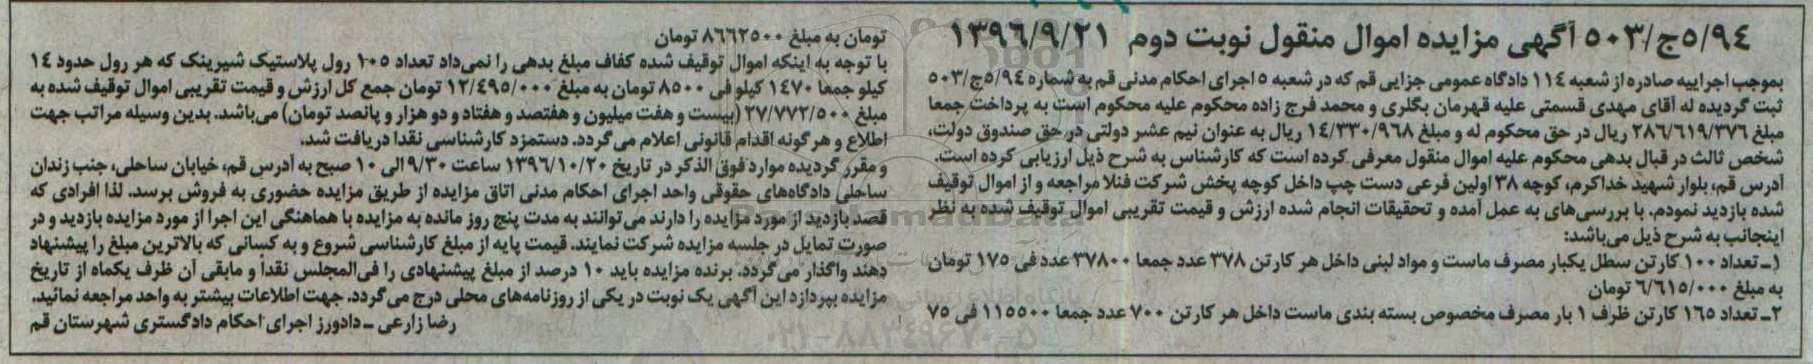 ۵/۹۴ج/۵۰۳ آگهی مزایده اموال منقول نوبت دوم ۱۳۹۶/۹/۲۱
بموجب اجراییه صادره از شعبه ۱۱۴ دادگاه عمومی جزایی قم که در شعبه ۵ اجرای احکام مدنی قم به شماره ۵/۹۴ج/۵۰۳
ثبت گردیده له آقای مهدی قسمتی علیه قهرمان بگلری و محمد فرج زاده محکوم علیه محکوم است به پرداخت جمعا
مبلغ ۲۸۶/۶۱۹/۳۷۶ ریال در حق محکوم له و مبلغ ۱۴/۳۳۰/۹۶۸ ریال به عنوان نیم عشر دولتی در حق صندوق دولت،
شخص ثالث در قبال بدهی محکوم علیه اموال منقول معرفی کرده است که کارشناس به شرح ذیل ارزیابی کرده است.
آدرس قم، بلوار شهید خداکرم، کوچه ۳۸ اولین فرعی دست چپ داخل کوچه پخش شرکت فنلا مراجعه و از اموال توقیف
شده بازدید نمودم. با بررسی‌های به عمل آمده و تحقیقات انجام شده ارزش و قیمت تقریبی اموال توقیف شده به نظر
اینجانب به شرح ذیل می‌باشد:
۱ـ تعداد ۱۰۰ کارتن سطل یکبار مصرف ماست و مواد لبنی داخل هر کارتن ۳۷۸ عدد جمعا ۳۷۸۰۰ عدد فی ۱۷۵ تومان
به مبلغ ۶/۶۱۵/۰۰۰ تومان
۲ـ تعداد ۱۶۵ کارتن ظرف ۱ بار مصرف مخصوص بسته بندی ماست داخل هر کارتن ۷۰۰ عدد جمعا ۱۱۵۵۰۰ فی ۷۵
تومان به مبلغ ۸۶۶۲۵۰۰ تومان
با توجه به اینکه اموال توقیف شده کفاف مبلغ بدهی را نمی‌داد تعداد ۱۰۵ رول پلاستیک شیرینک که هر رول حدود ۱۴
کیلو جمعا ۱۴۷۰ کیلو فی ۸۵۰۰ تومان به مبلغ ۱۲/۴۹۵/۰۰۰ تومان جمع کل ارزش و قیمت تقریبی اموال توقیف شده به
مبلغ ۲۷/۷۷۲/۵۰۰ (بیست و هفت میلیون و هفتصد و هفتاد و دو هزار و پانصد تومان) می‌باشد. بدین وسیله مراتب جهت
اطلاع و هر گونه اقدام قانونی اعلام می گردد. دستمزد کارشناسی نقدا دریافت شد.
و مقرر گردیده موارد فوق الذکر در تاریخ ۱۳۹۶/۱۰/۲۰ ساعت ۹/۳۰ الی ۱۰ صبح به آدرس قم، خیابان ساحلی، جنب زندان
ساحلی دادگاه‌های حقوقی واحد اجرای احکام مدنی اتاق مزایده از طریق مزایده حضوری به فروش برسد. لذا افرادی که
قصد بازدید از مورد مزایده را دارند می توانند به مدت پنج روز مانده به مزایده با هماهنگی این اجرا از مورد مزایده بازدید و در
صورت تمایل در جلسه مزایده شرکت نمایند. قیمت پایه از مبلغ کارشناسی شروع و به کسانی که بالاترین مبلغ را پیشنهاد
دهند واگذار می گردد. برنده مزایده باید ۱۰ درصد از مبلغ پیشنهادی را فی‌المجلس نقداً و مابقی آن ظرف یکماه از تاریخ
مزایده بپردازد این آگهی یک نوبت در یکی از روزنامه‌های محلی درج می گردد. جهت اطلاعات بیشتر به واحد مراجعه نمائید.
رضا زارعی ـ دادورز اجرای احکام دادگستری شهرستان قم
۰۲۱-۸۸۳۴۹۶۷۰-۵